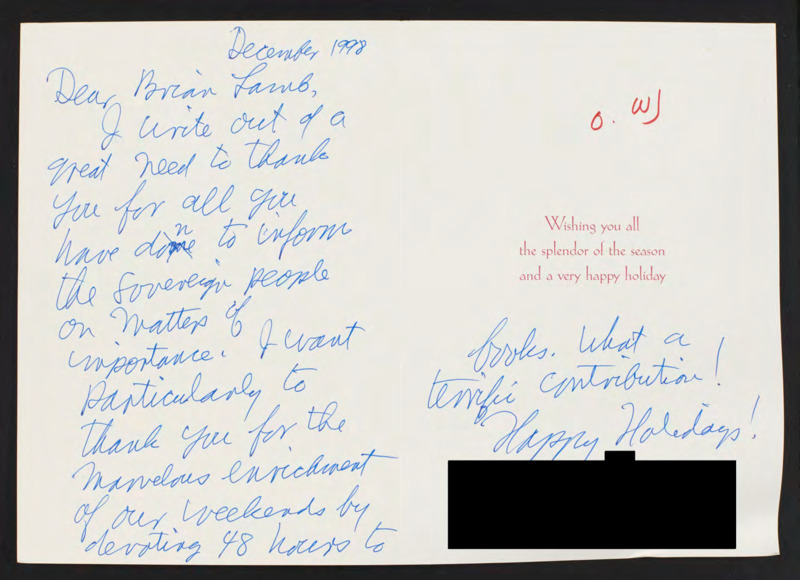 December 1998
Dear Brian Lamb,
I write out of a
great need to thank
you for all you
have done to inform
the sovereign people
on matters of
importance. I want
particularly to
thank you for the
marvelous enrichment
of our weekends by
devoting 48 hours to
O. WJ
Wishing you all
the splendor of the season
and a very happy holiday
books. What a
terrific contribution!
Happy Holidays!